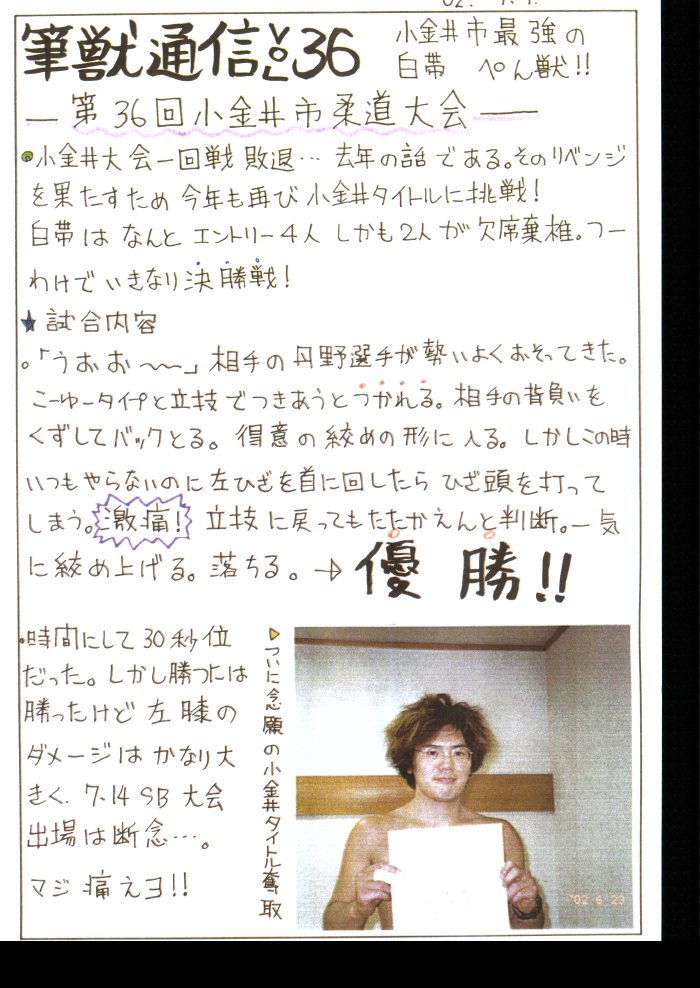 筆獣通信VOL36
小金井市最強の
白帯 ぺん獣!!
― 第36回小金井市柔道大会 ―
小金井大会一回戦敗退… 去年の話である。そのリベンジ
を果たすため今年も再び小金井タイトルに挑戦!
白帯はなんとエントリー4人しかも2人が欠席棄権。つー
わけでいきなり決勝戦!
★試合内容
。「うおお〜〜」相手の丹野選手が勢いよくおそってきた。
こーゆータイプと立技でつきあうとつかれる。相手の背負いを
くずしてバックとる。得意の絞めの形に入る。しかしこの時
いつもやらないのに左ひざを首に回したらひざ頭を打って
しまう。激痛! 立技に戻ってもたたかえんと判断。一気
に絞め上げる。落ちる。→ 優勝!!
・時間にして30秒位
だった。しかし勝つには
勝ったけど左膝の
ダメージはかなり大
きく、7.14 SB 大会
出場は断念…。
マジ痛えヨ!!
ついに念願の小金井タイトル奪取
'02 6 23